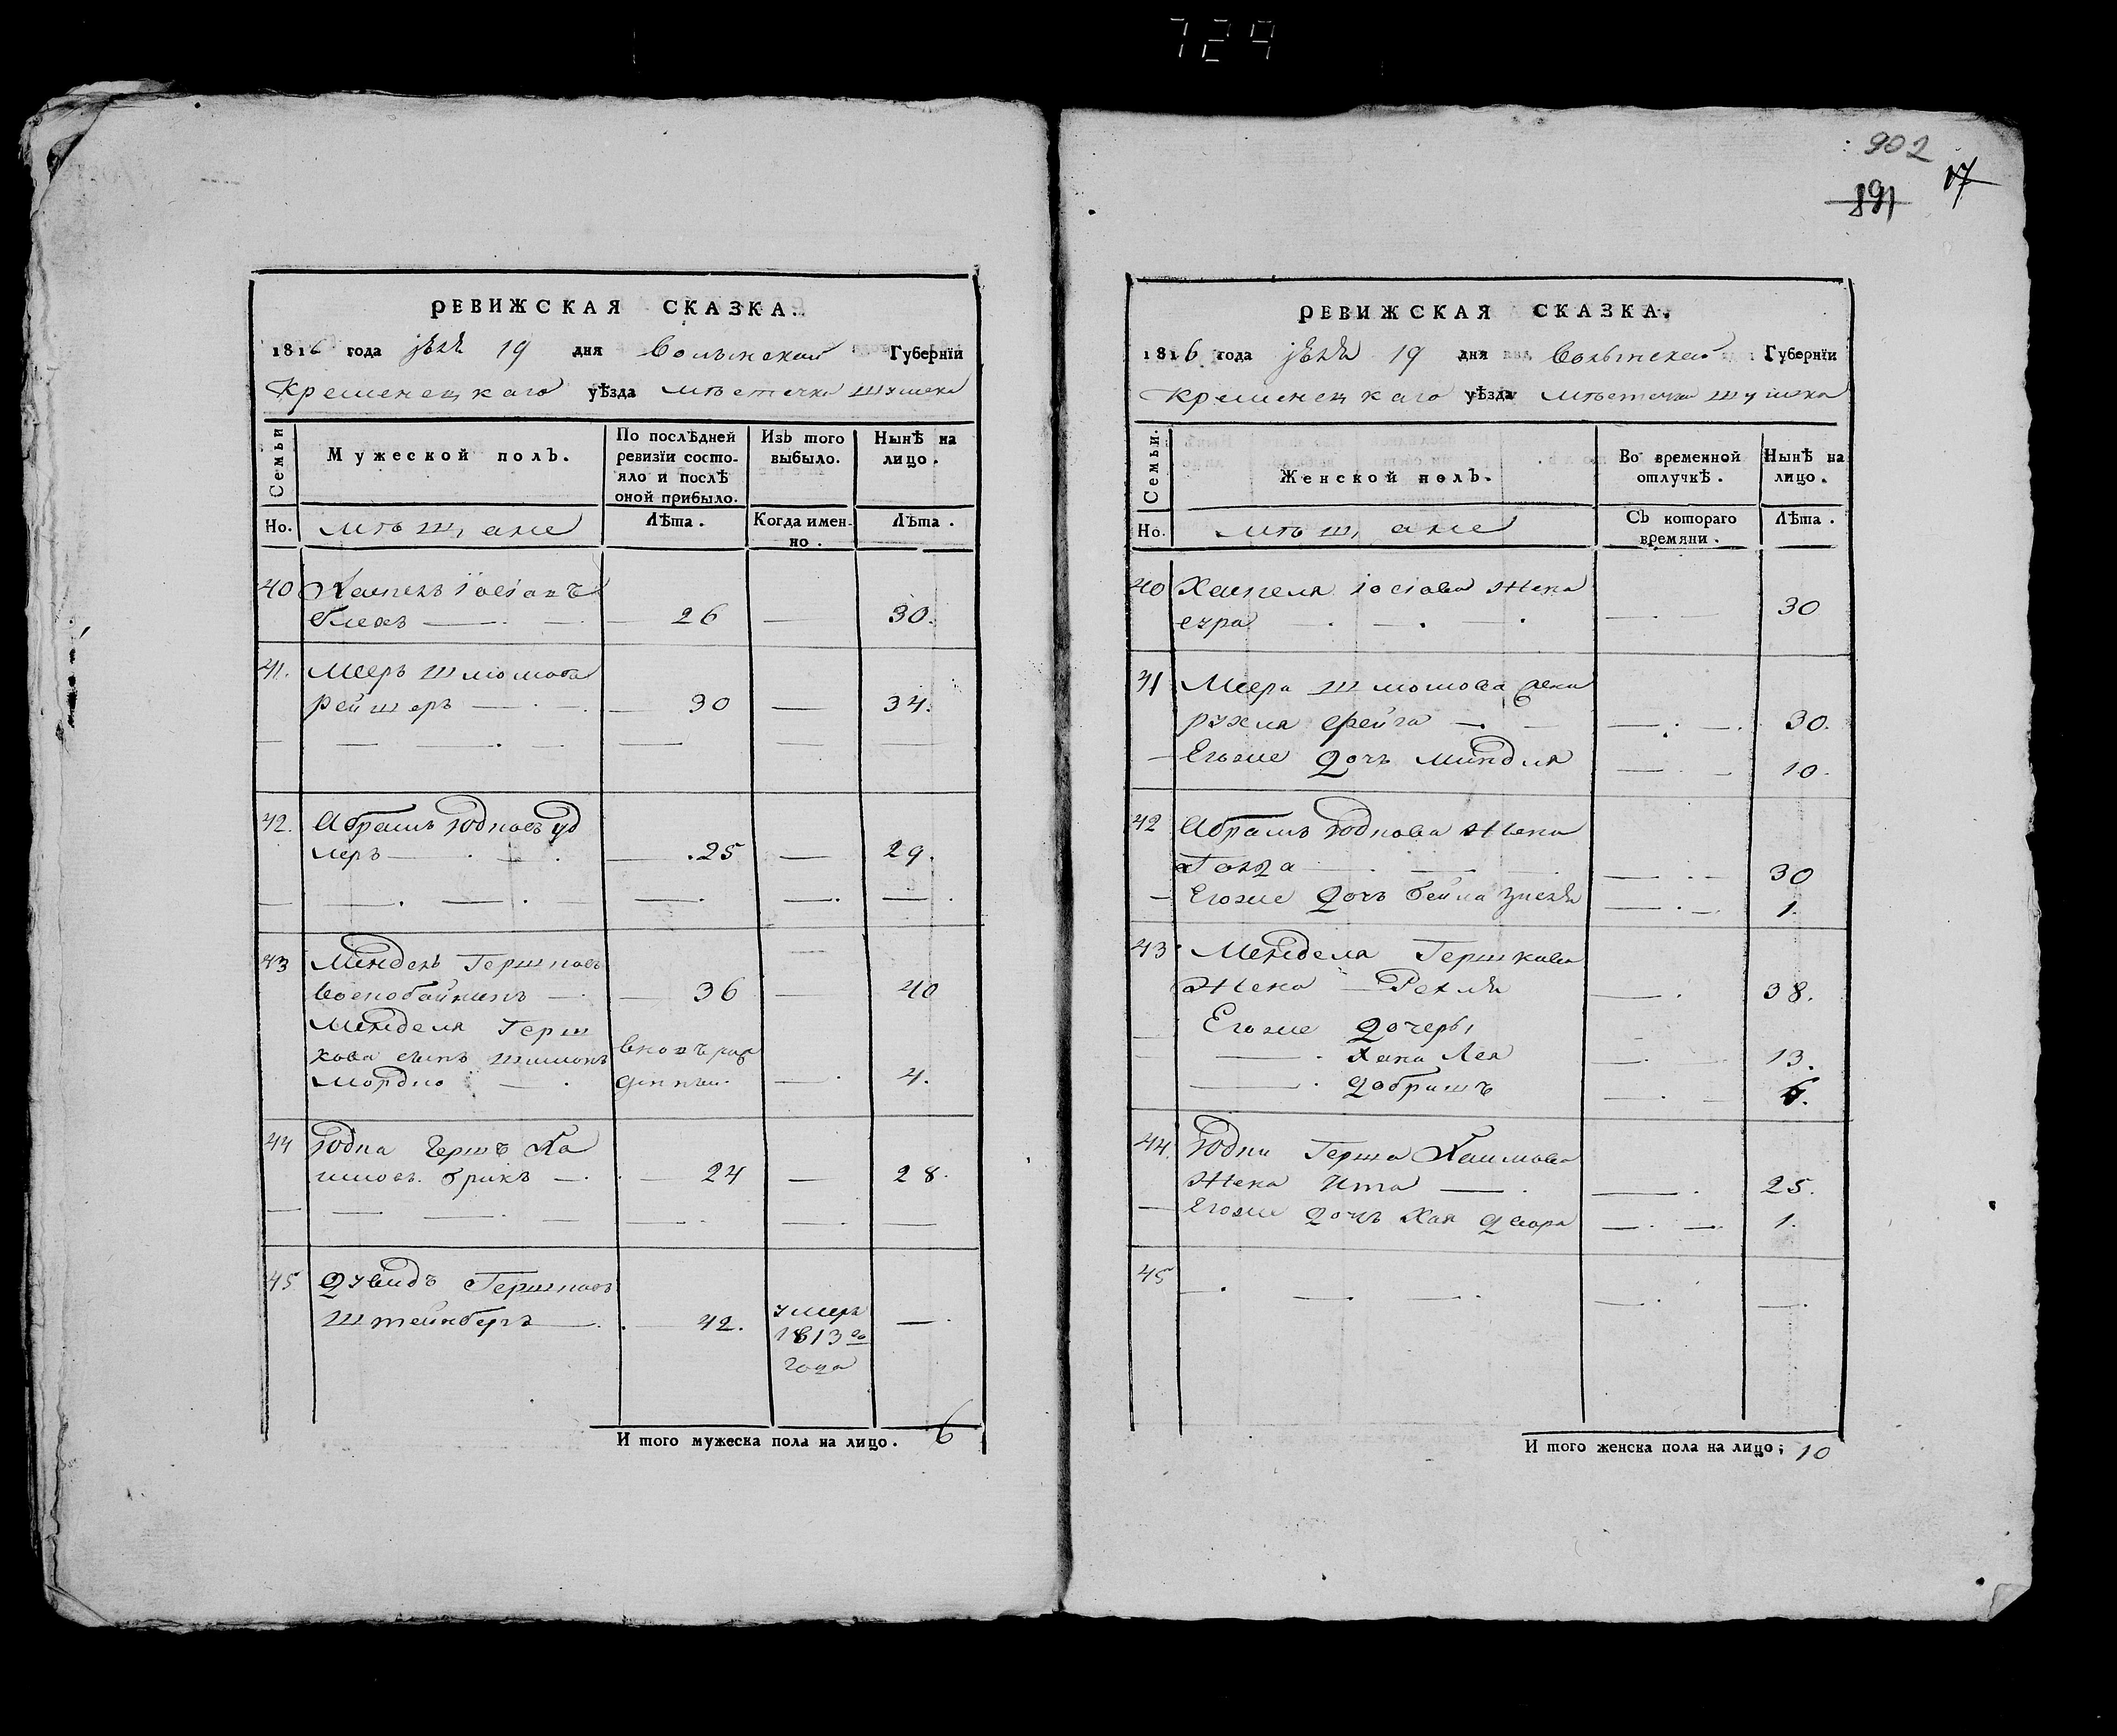 729
902
891
17
РЕВИЖСКАЯ СКАЗКА.
1816 года 19 дня Волынской Губернїи
Кременецкаго уѣзда мѣстечка Шумска
Семьи
Мужеской полъ.
По послѣдней ревизїи состояло и послѣ оной прибыло.
Изъ того выбыло.
Нынѣ на лицо.
Но.
мѣщане
Лѣта.
Когда именно.
Лѣта.
40
26
30.
41.
Мееръ Шмюмовъ
Рейшеръ
30
34.
42.
Абрамъ Юдковъ Уд
леръ
25
29.
43
Мендель Гершковъ
36
40
Менделя Герш
кова сынъ Шлиома
Мордко
вновь рож
денный
4.
44
Юдка Гершъ Ха
имовъ брикъ
24
28.
45
Дувидъ Гершковъ
Штейнбергъ
42.
умеръ
1813го
года
И того мужеска пола на лицо. 6
РЕВИЖСКАЯ СКАЗКА.
1816 года 19 дня Волынской Губернїи
Кременецкаго уѣзда мѣстечка Шумска
Семьи.
Женской полъ.
Во временной отлучкѣ.
Нынѣ на лицо.
Но.
мѣщане
Съ котораго времяни.
Лѣта.
40
Хаскеля Іосіова жена
сура
30
41
Меера Шмомова жена
рухля фейга
30.
Егоже дочь Миндля
10.
42
Абрамъ Юдкова жена
Голда
30
Егоже дочь бейла
1.
43
Менделя Гершкова
жена Рехля
38.
Егоже дочеры
Хана Лея
13.
Добришъ
6.
44.
Юдки Герша Хаимова
жена Ита
25.
Егоже дочь Хая двора
1.
45
И того женска пола на лицо; 10